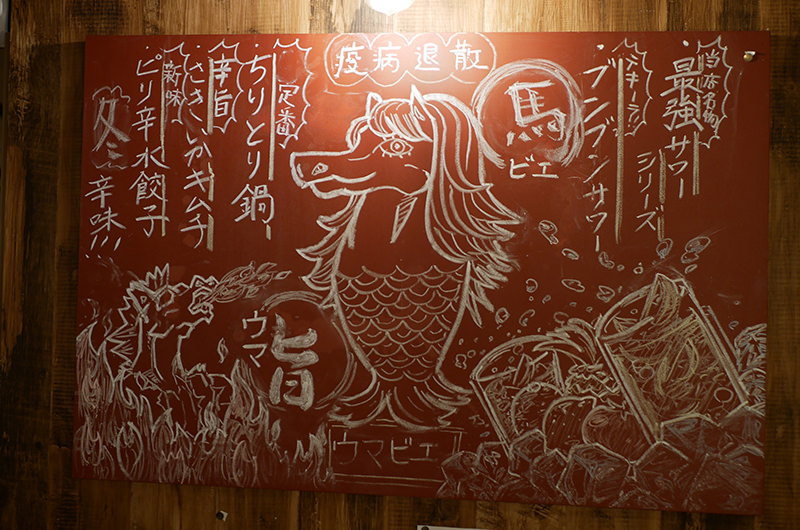 疫病退散
当店名物
最強サワー
シリーズ
ブンブンサワー
馬
ビエ
定番
ちりとり鍋
辛旨
さきいかキムチ
新味
ピリ辛水餃子
冬
辛味!!!
ウマ
旨
ウマビエ